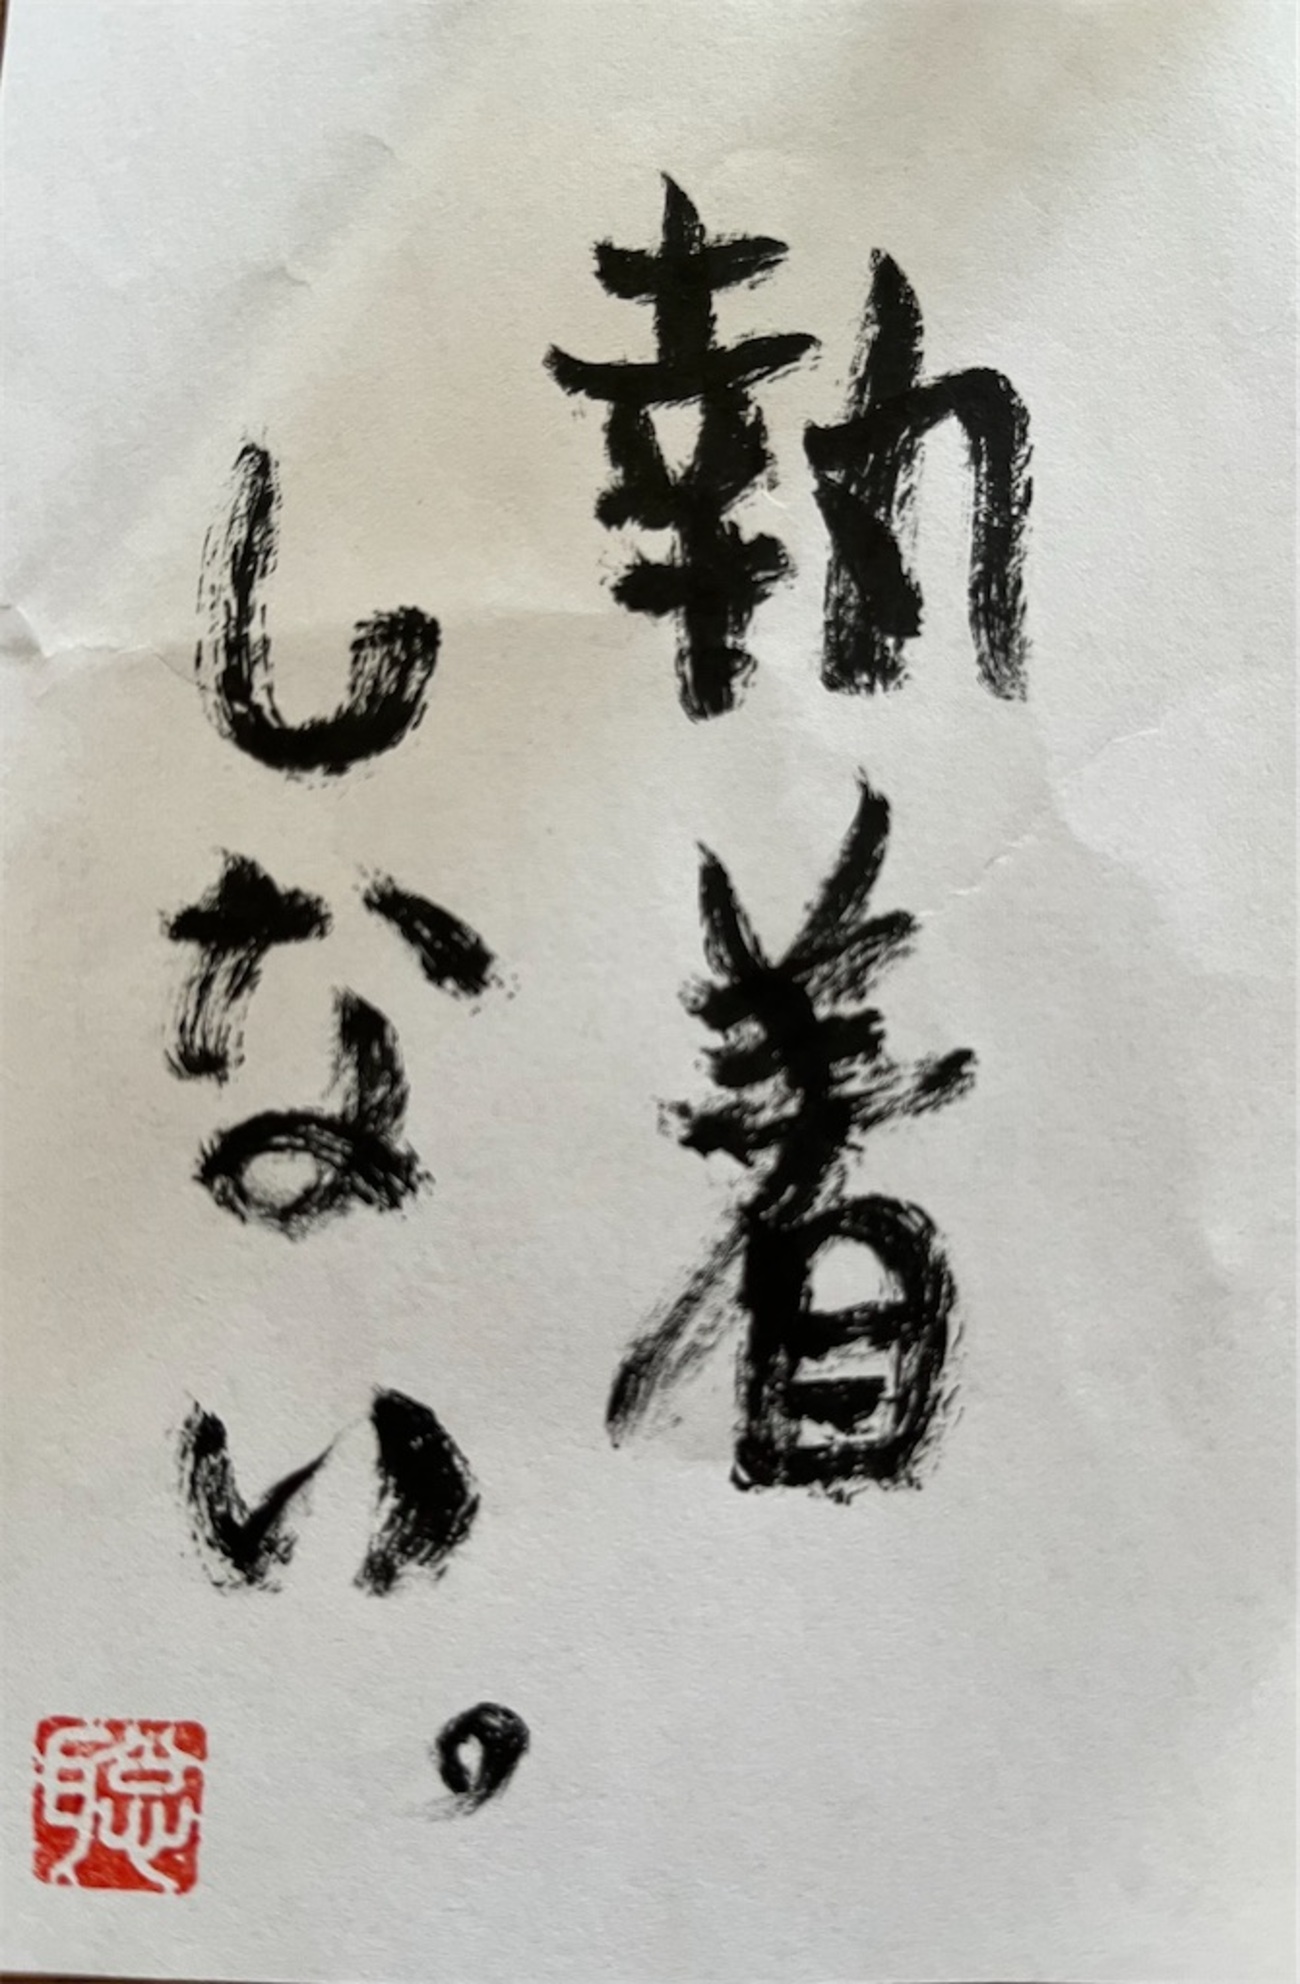 執着
しない。